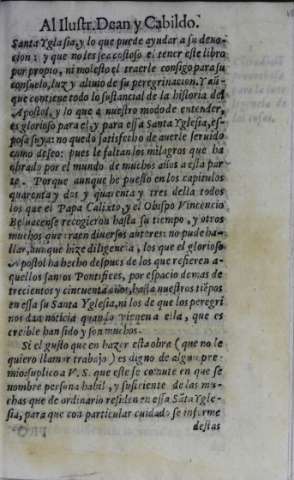 Al Ilustr. Dean y Cabildo.
Santa Yglesia, y lo que puede ayudar a su deuo-
cion: y que no les sea costoso el tener este libro
por propio, ni molesto el traerle consigo para su
consuelo, luz y aliuio de su peregrinacion. Y aũ-
que contiene todo lo sustancial de la historia del
Apostol, y lo que a nuestro modo de entender,
es glorioso para el, y para essa Santa Yglesia, es-
posa suya: no quedo satisfecho de auerle seruido
como deseo: pues le faltan los milagros que ha
obrado por el mundo de muchos años a esta par
te. Porque aunque he puesto en los capitulos
quarenta y dos y quarenta y tres della todos
los que el Papa Calixto, y el Obispo Vincencio
Beluacense recogieron hasta su tiempo, y otros
muchos que traen diuersos autores: no pude ha-
llar, aunque hize diligencia, los que el glorioso
Apostol ha hecho despues de los que refieren a-
quellos santos Pontifices, por espacio de mas de
trecientos y cincuenta años, hasta nuestros tiẽpos
en essa su Santa Yglesia, ni los de que los peregri
nos dan noticia quando vienen a ella, que es
creible han sido y son muchos.
Si el gusto que en hazer esta obra (que no le
quiero llamar trabajo) es digno de algun pre-
mio: suplico a V. S. que este se comute en que se
nombre persona habil, y suficiente de las mu-
chas que de ordinario residen en essa Sãta Ygle-
sia, para que con particular cuidado se informe
destas